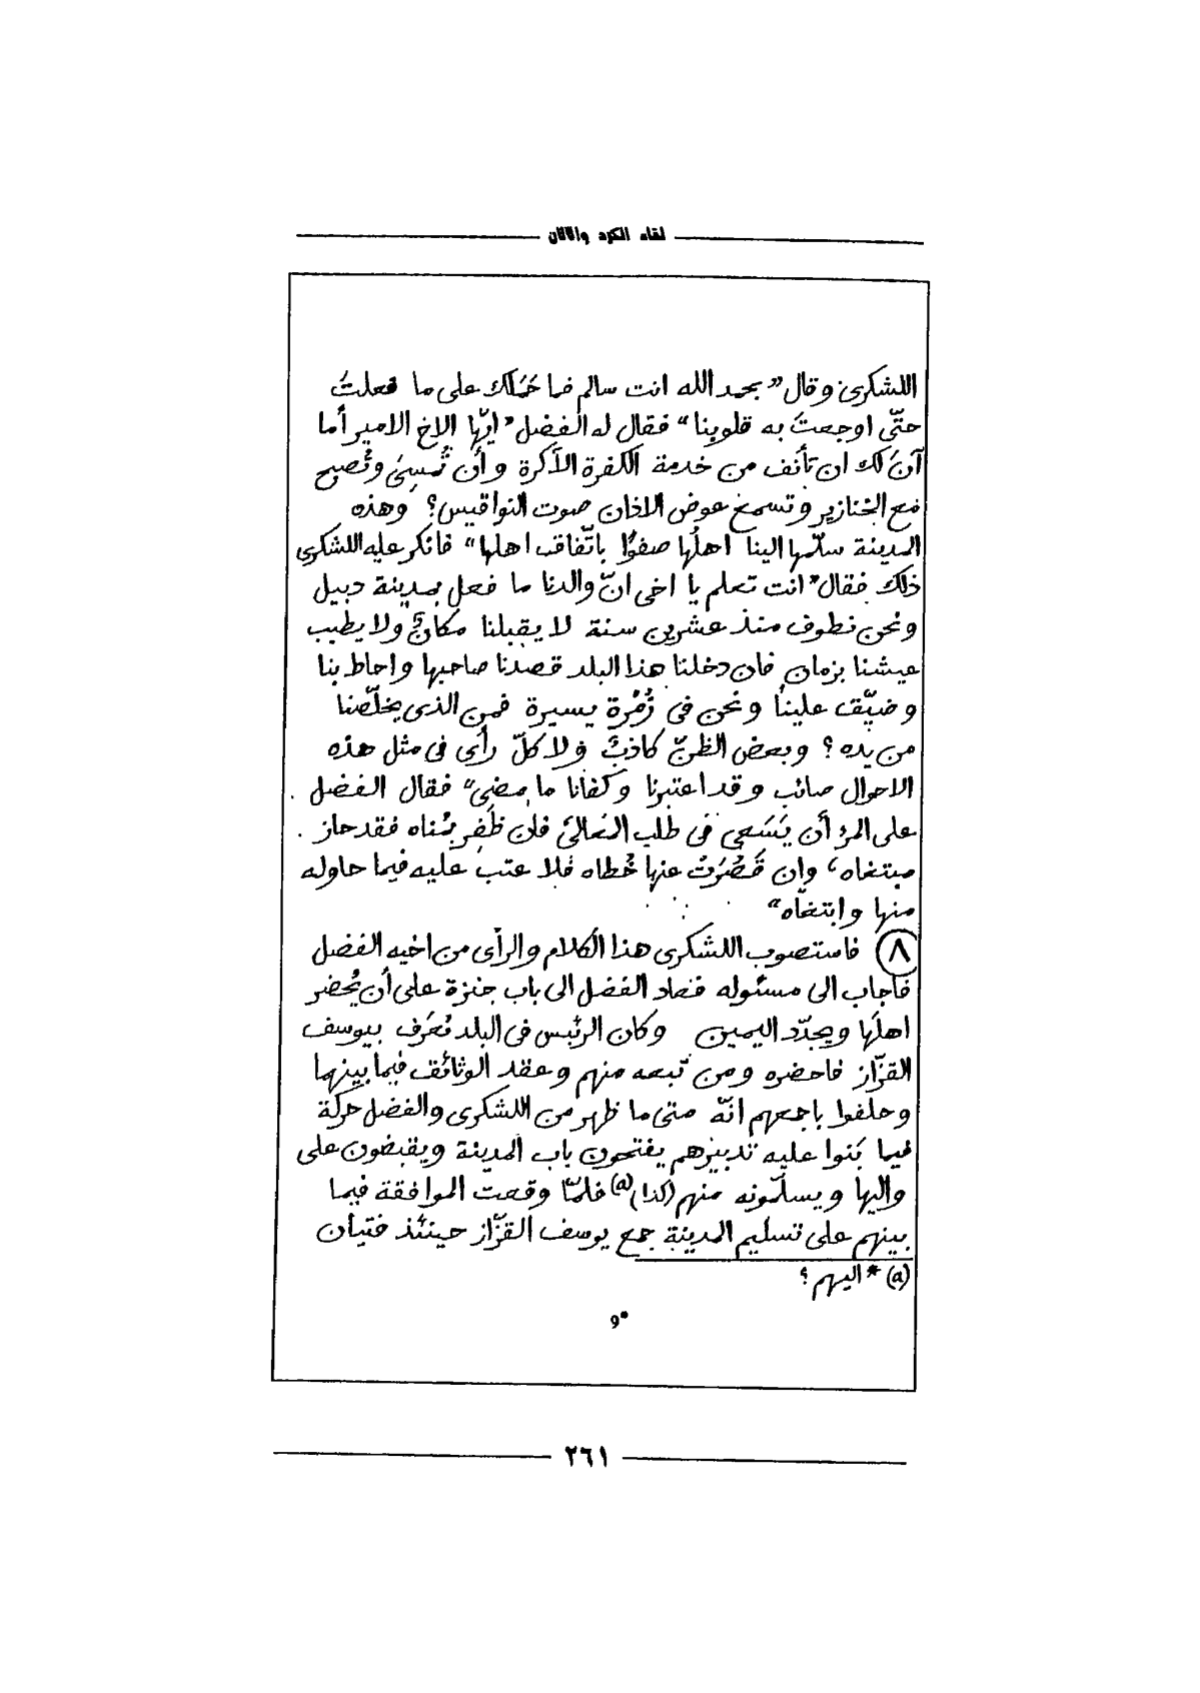 لقاء الكرد واللان
اللشكرى وقال "بحمد الله انت سالم فما حَمَلك على ما فعلتَ
حتّى اوجعتَ به قلوبنا" فقال له الفضل "ايّها الاخ الامير أما
آنَ لك ان تأنف من خدمة الكفرة الأكرة وأن تُمسِىَ وتُصبح
مع الخنازير وتسمعَ عوض الاذان صوت النواقيس؟ وهذه
المدينة سلّمها الينا اهلُها صفوًا باتّفاقٍ اهلها" فانكر عليه اللشكرى
ذلك فقال "انت تعلم يا اخى انّ والدنا ما فعل بمدينة دبيل
ونحن نطوف منذ عشرين سنة لا يقبلنا مكانٌ ولا يطيب
عيشنا بزمان فان دخلنا هذا البلد قصدنا صاحبها واحاط بنا
وضيّق علينا ونحن فى زُمْرة يسيرة فمن الذى يخلّصنا
من يده؟ وبعض الظنّ كاذبٌ ولا كلّ رأى فى مثل هذه
الاحوال صائب وقد اعتبرنا وكفانا ما مضى" فقال الفضل
على المرؤ أن يَسَعى فى طلب المَعالىَ فان ظَفِر بمُناه فقد حاز
مبتغاه، وان قَصُرَتْ عنها خُطاه فلا عتبَ عليه فيما حاوله
منها وابتغاه"
٨ فاستصوب اللشكرى هذا الكلام والرأى من اخيه الفضل
فاجاب الى مسئوله فعاد الفضل الى باب جنزة على أن يُحضر
اهلَها ويجدّد اليمين وكان الرئيس فى البلد يُعرَف بيوسف
القزّاز فاحضره ومن تبعه منهم وعقد الوثائق فيما بينهما
وحلفوا باجمعهم انّه متى ما ظهر من اللشكرى والفضل حركة
فيما بَنوا عليه تدبيرهم يفتحون باب المدينة ويقبضون على
واليها ويسلّمونه منهم (كذا) (a) فلمّا وقعت الموافقة فيما
بينهم على تسليم المدينة جمع يوسف القزّاز حينئذ فتيان
(a) * اليهم؟
٩*
٢٦١